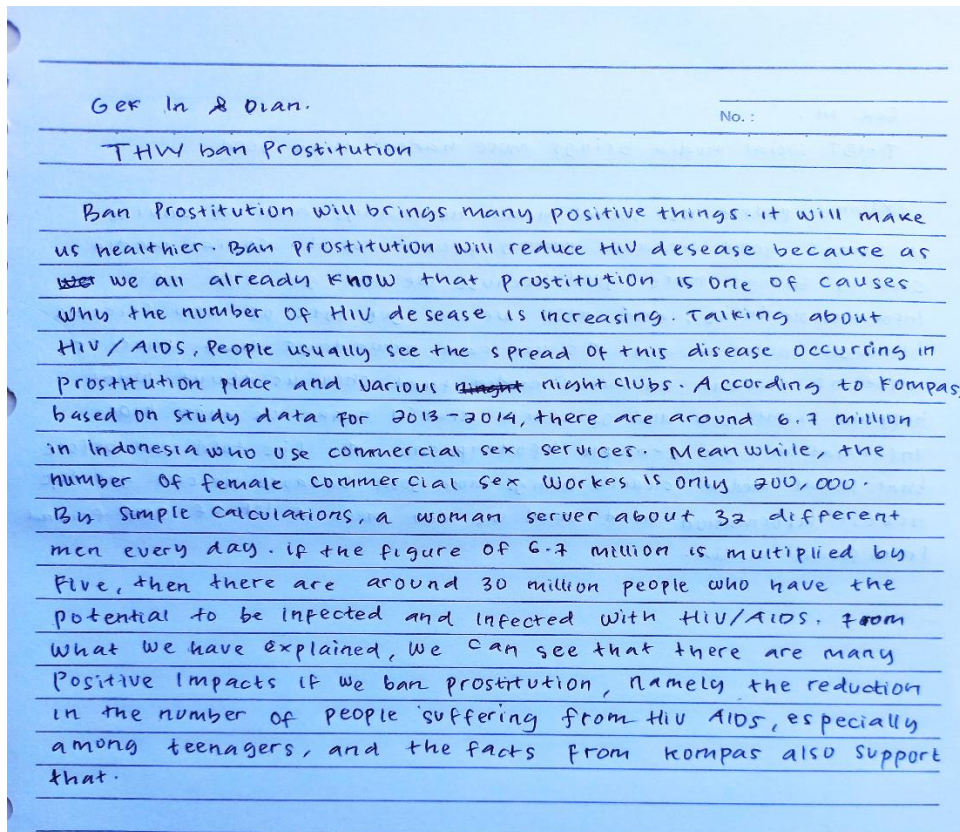 Gek In & Dian.
No. :
THW ban Prostitution
Ban Prostitution will brings many positive things. it will make
us healthier. Ban prostitution will reduce HIV desease because as
we all already know that prostitution is one of causes
why the number of HIV desease is increasing. Talking about
HIV/AIDS, People usually see the spread of this disease occurring in
prostitution place and various night clubs. According to Kompas,
based on study data for 2013-2014, there are around 6.7 million
in Indonesia who use commercial sex services. Meanwhile, the
number of female commercial sex workes is only 200,000.
By simple calculations, a woman server about 32 different
men every day. if the figure of 6.7 million is multiplied by
Five, then there are around 30 million people who have the
potential to be infected and infected with HIV/AIDS. From
what we have explained, we can see that there are many
Positive impacts if we ban prostitution, namely the reduction
in the number of people suffering from HIV AIDS, especially
among teenagers, and the facts from kompas also support
that.